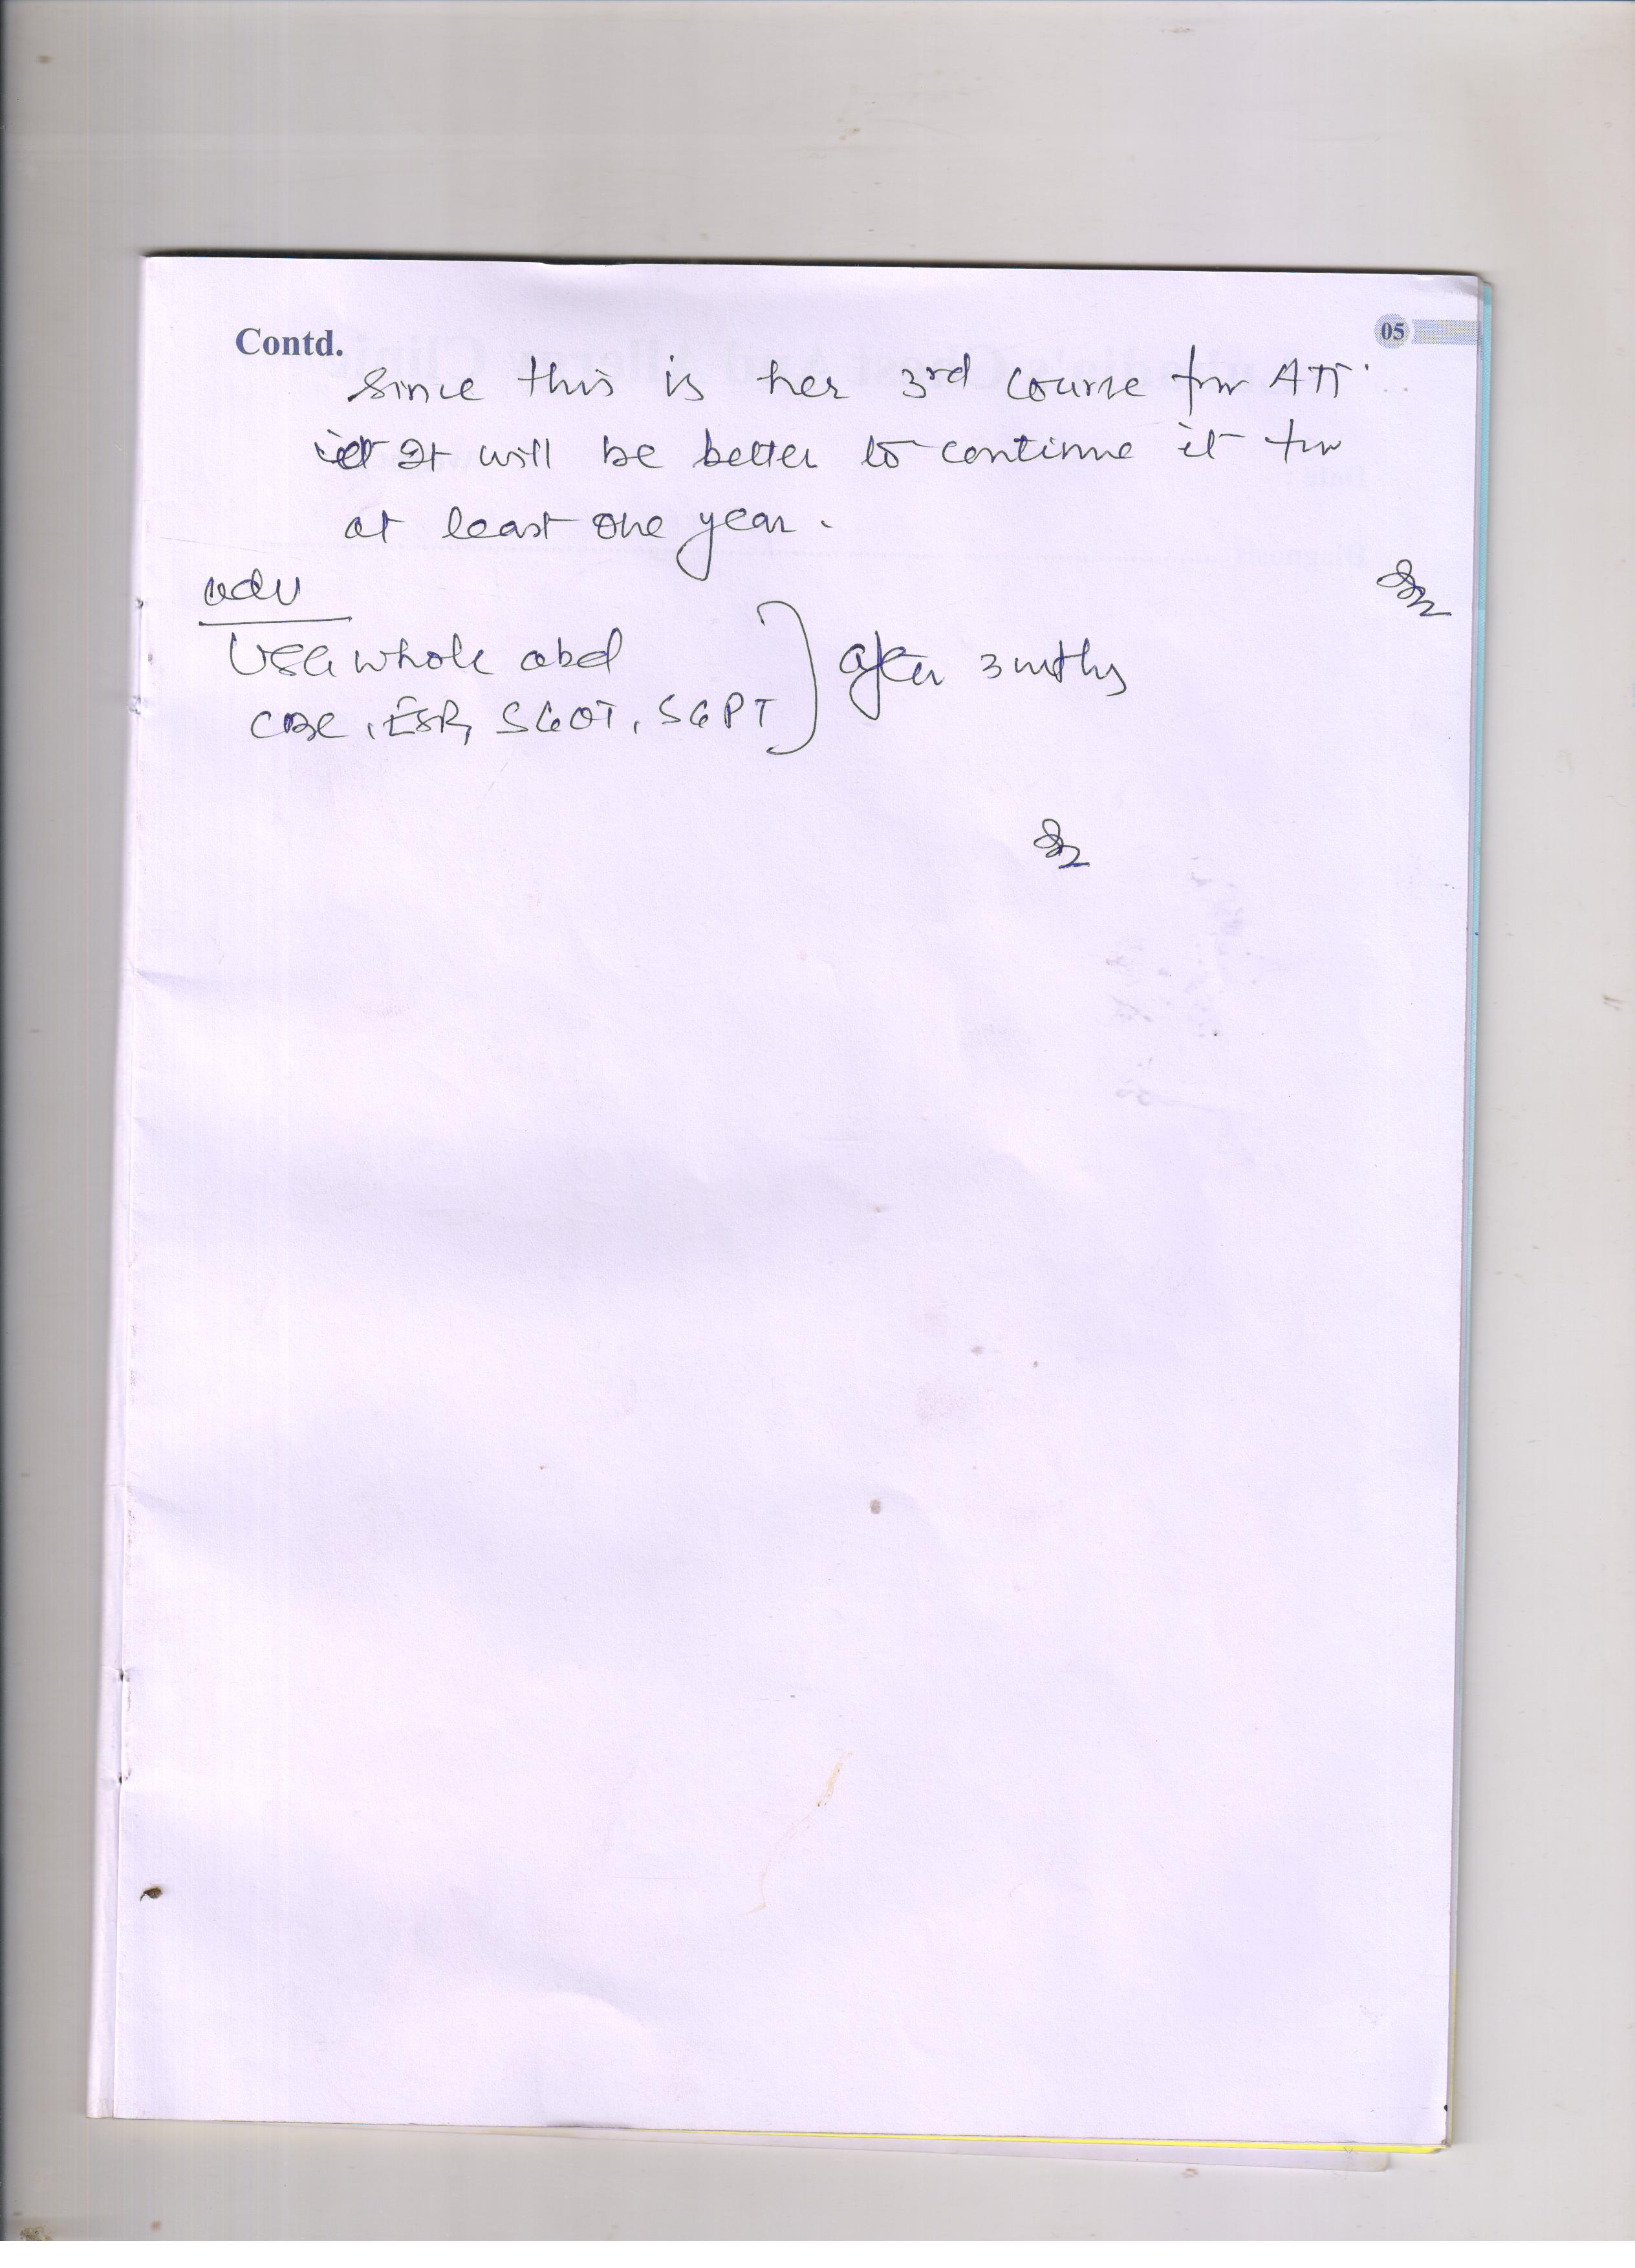 Contd.
05
Since this is her 3rd course for ATT.
It will be better to continue it for
at least one year.
adv
USG whole abd
CBC, ESR, SGOT, SGPT } after 3 mths